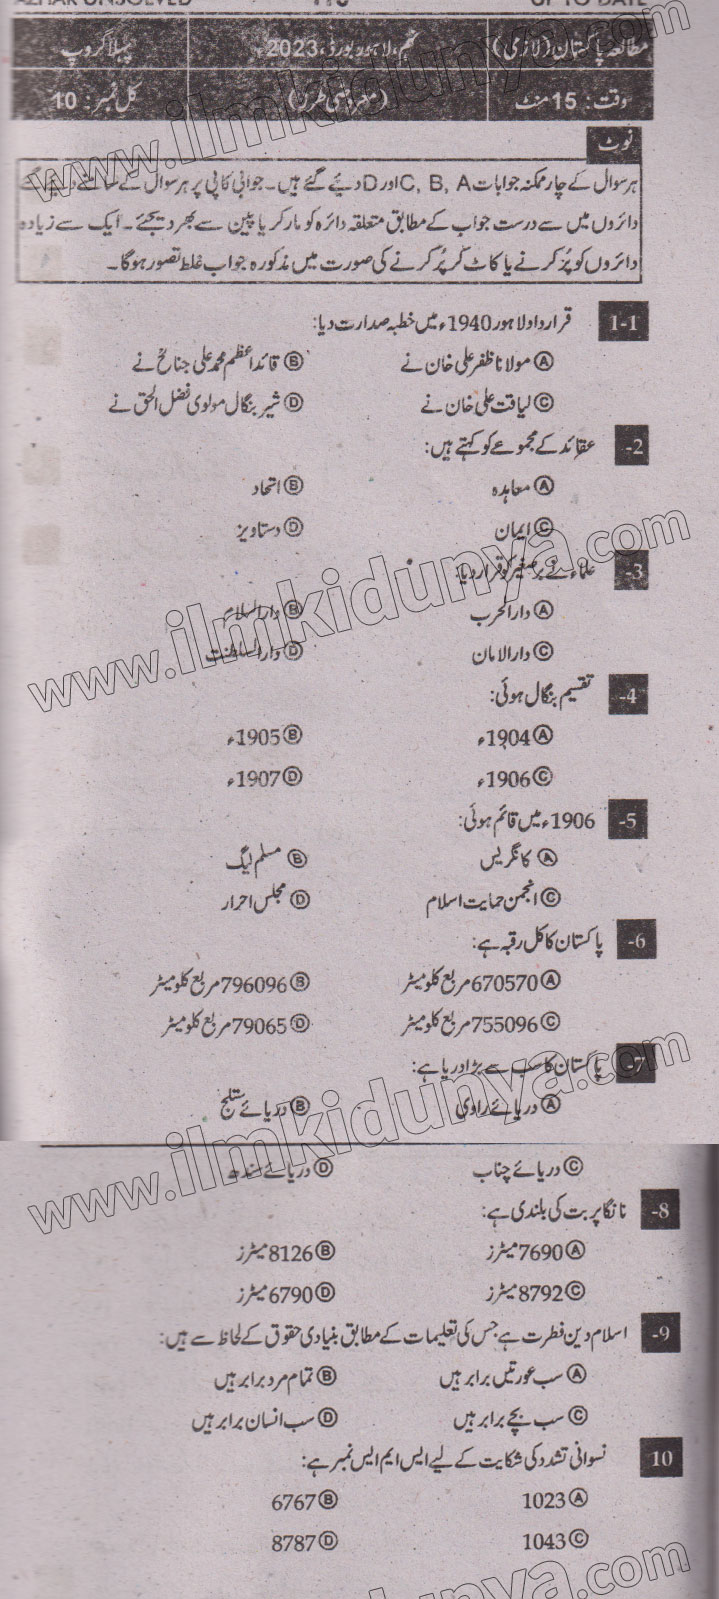 AZHAR UNSOLVED 113 UP TO DATE
مطالعہ پاکستان (لازمی) نہم، لاہور بورڈ، 2023ء پہلا گروپ
وقت: 15 منٹ (معروضی طرز) کل نمبر: 10
نوٹ
ہر سوال کے چار ممکنہ جوابات C, B, A اور D دیئے گئے ہیں۔ جوابی کاپی پر ہر سوال کے سامنے دیئے گئے
دائروں میں سے درست جواب کے مطابق متعلقہ دائرہ کو مارکر یا پین سے بھر دیجئے۔ ایک سے زیادہ
دائروں کو پُر کرنے یا کاٹ کر پُر کرنے کی صورت میں مذکورہ جواب غلط تصور ہوگا۔
1-1 قرارداد لاہور 1940ء میں خطبہ صدارت دیا:
Ⓐ مولانا ظفر علی خان نے Ⓑ قائداعظم محمد علی جناحؒ نے
Ⓒ لیاقت علی خان نے Ⓓ شیر بنگال مولوی فضل الحق نے
2- عقائد کے مجموعے کو کہتے ہیں:
Ⓐ معاہدہ Ⓑ اتحاد
Ⓒ ایمان Ⓓ دستاویز
3- علماء نے برصغیر کو قرار دیا:
Ⓐ دارالحرب Ⓑ دارالسلام
Ⓒ دارالامان Ⓓ دارالسلطنت
4- تقسیم بنگال ہوئی:
Ⓐ 1904ء Ⓑ 1905ء
Ⓒ 1906ء Ⓓ 1907ء
5- 1906ء میں قائم ہوئی:
Ⓐ کانگریس Ⓑ مسلم لیگ
Ⓒ انجمن حمایت اسلام Ⓓ مجلس احرار
6- پاکستان کا کل رقبہ ہے:
Ⓐ 670570 مربع کلومیٹر Ⓑ 796096 مربع کلومیٹر
Ⓒ 755096 مربع کلومیٹر Ⓓ 79065 مربع کلومیٹر
7- پاکستان کا سب سے بڑا دریا ہے:
Ⓐ دریائے راوی Ⓑ دریائے ستلج
Ⓒ دریائے چناب Ⓓ دریائے سندھ
8- نانگا پربت کی بلندی ہے:
Ⓐ 7690 میٹرز Ⓑ 8126 میٹرز
Ⓒ 8792 میٹرز Ⓓ 6790 میٹرز
9- اسلام دین فطرت ہے جس کی تعلیمات کے مطابق بنیادی حقوق کے لحاظ سے ہیں:
Ⓐ سب عورتیں برابر ہیں Ⓑ تمام مرد برابر ہیں
Ⓒ سب بچے برابر ہیں Ⓓ سب انسان برابر ہیں
10 نسوانی تشدد کی شکایت کے لیے ایس ایم ایس نمبر ہے:
Ⓐ 1023 Ⓑ 6767
Ⓒ 1043 Ⓓ 8787
www.ilmkidunya.com
www.ilmkidunya.com
www.ilmkidunya.com
ilmkidunya.com